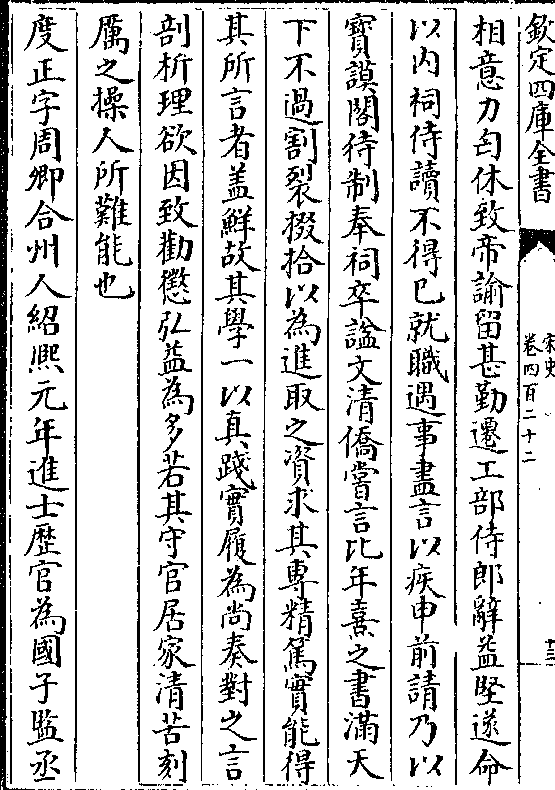 欽定四庫全書
宋史
卷四百二十二
十三
相意力匄休致帝諭留甚勤遷工部侍郎辭益堅遂命
以内祠侍讀不得已就職遇事盡言以疾申前請乃以
寶謨閣待制奉祠卒諡文清僑嘗言比年熹之書滿天
下不過割裂掇拾以為進取之資求其專精篤實能得
其所言者盖鮮故其學一以真踐實履為尚奏對之言
剖析理欲因致勸懲弘益為多若其守官居家清苦刻
厲之操人所難能也
度正字周卿合州人紹熙元年進士歴官為國子監丞